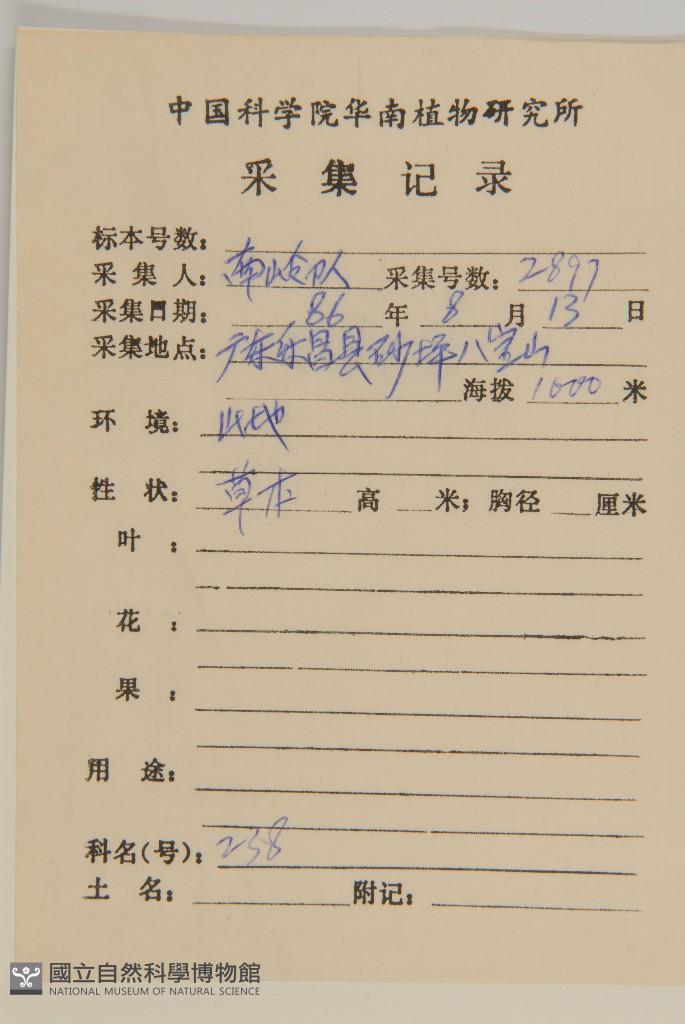 中国科学院华南植物研究所
采集记录
标本号数：
采集人：南岭队 采集号数：2897
采集日期：86年8月13日
采集地点：广东乐昌县砂坪八宝山
海拨1000米
环境：山地
性状：草本 高 米；胸径 厘米
叶：
花：
果：
用途：
科名(号)：238
土名： 附记：
國立自然科學博物館
NATIONAL MUSEUM OF NATURAL SCIENCE